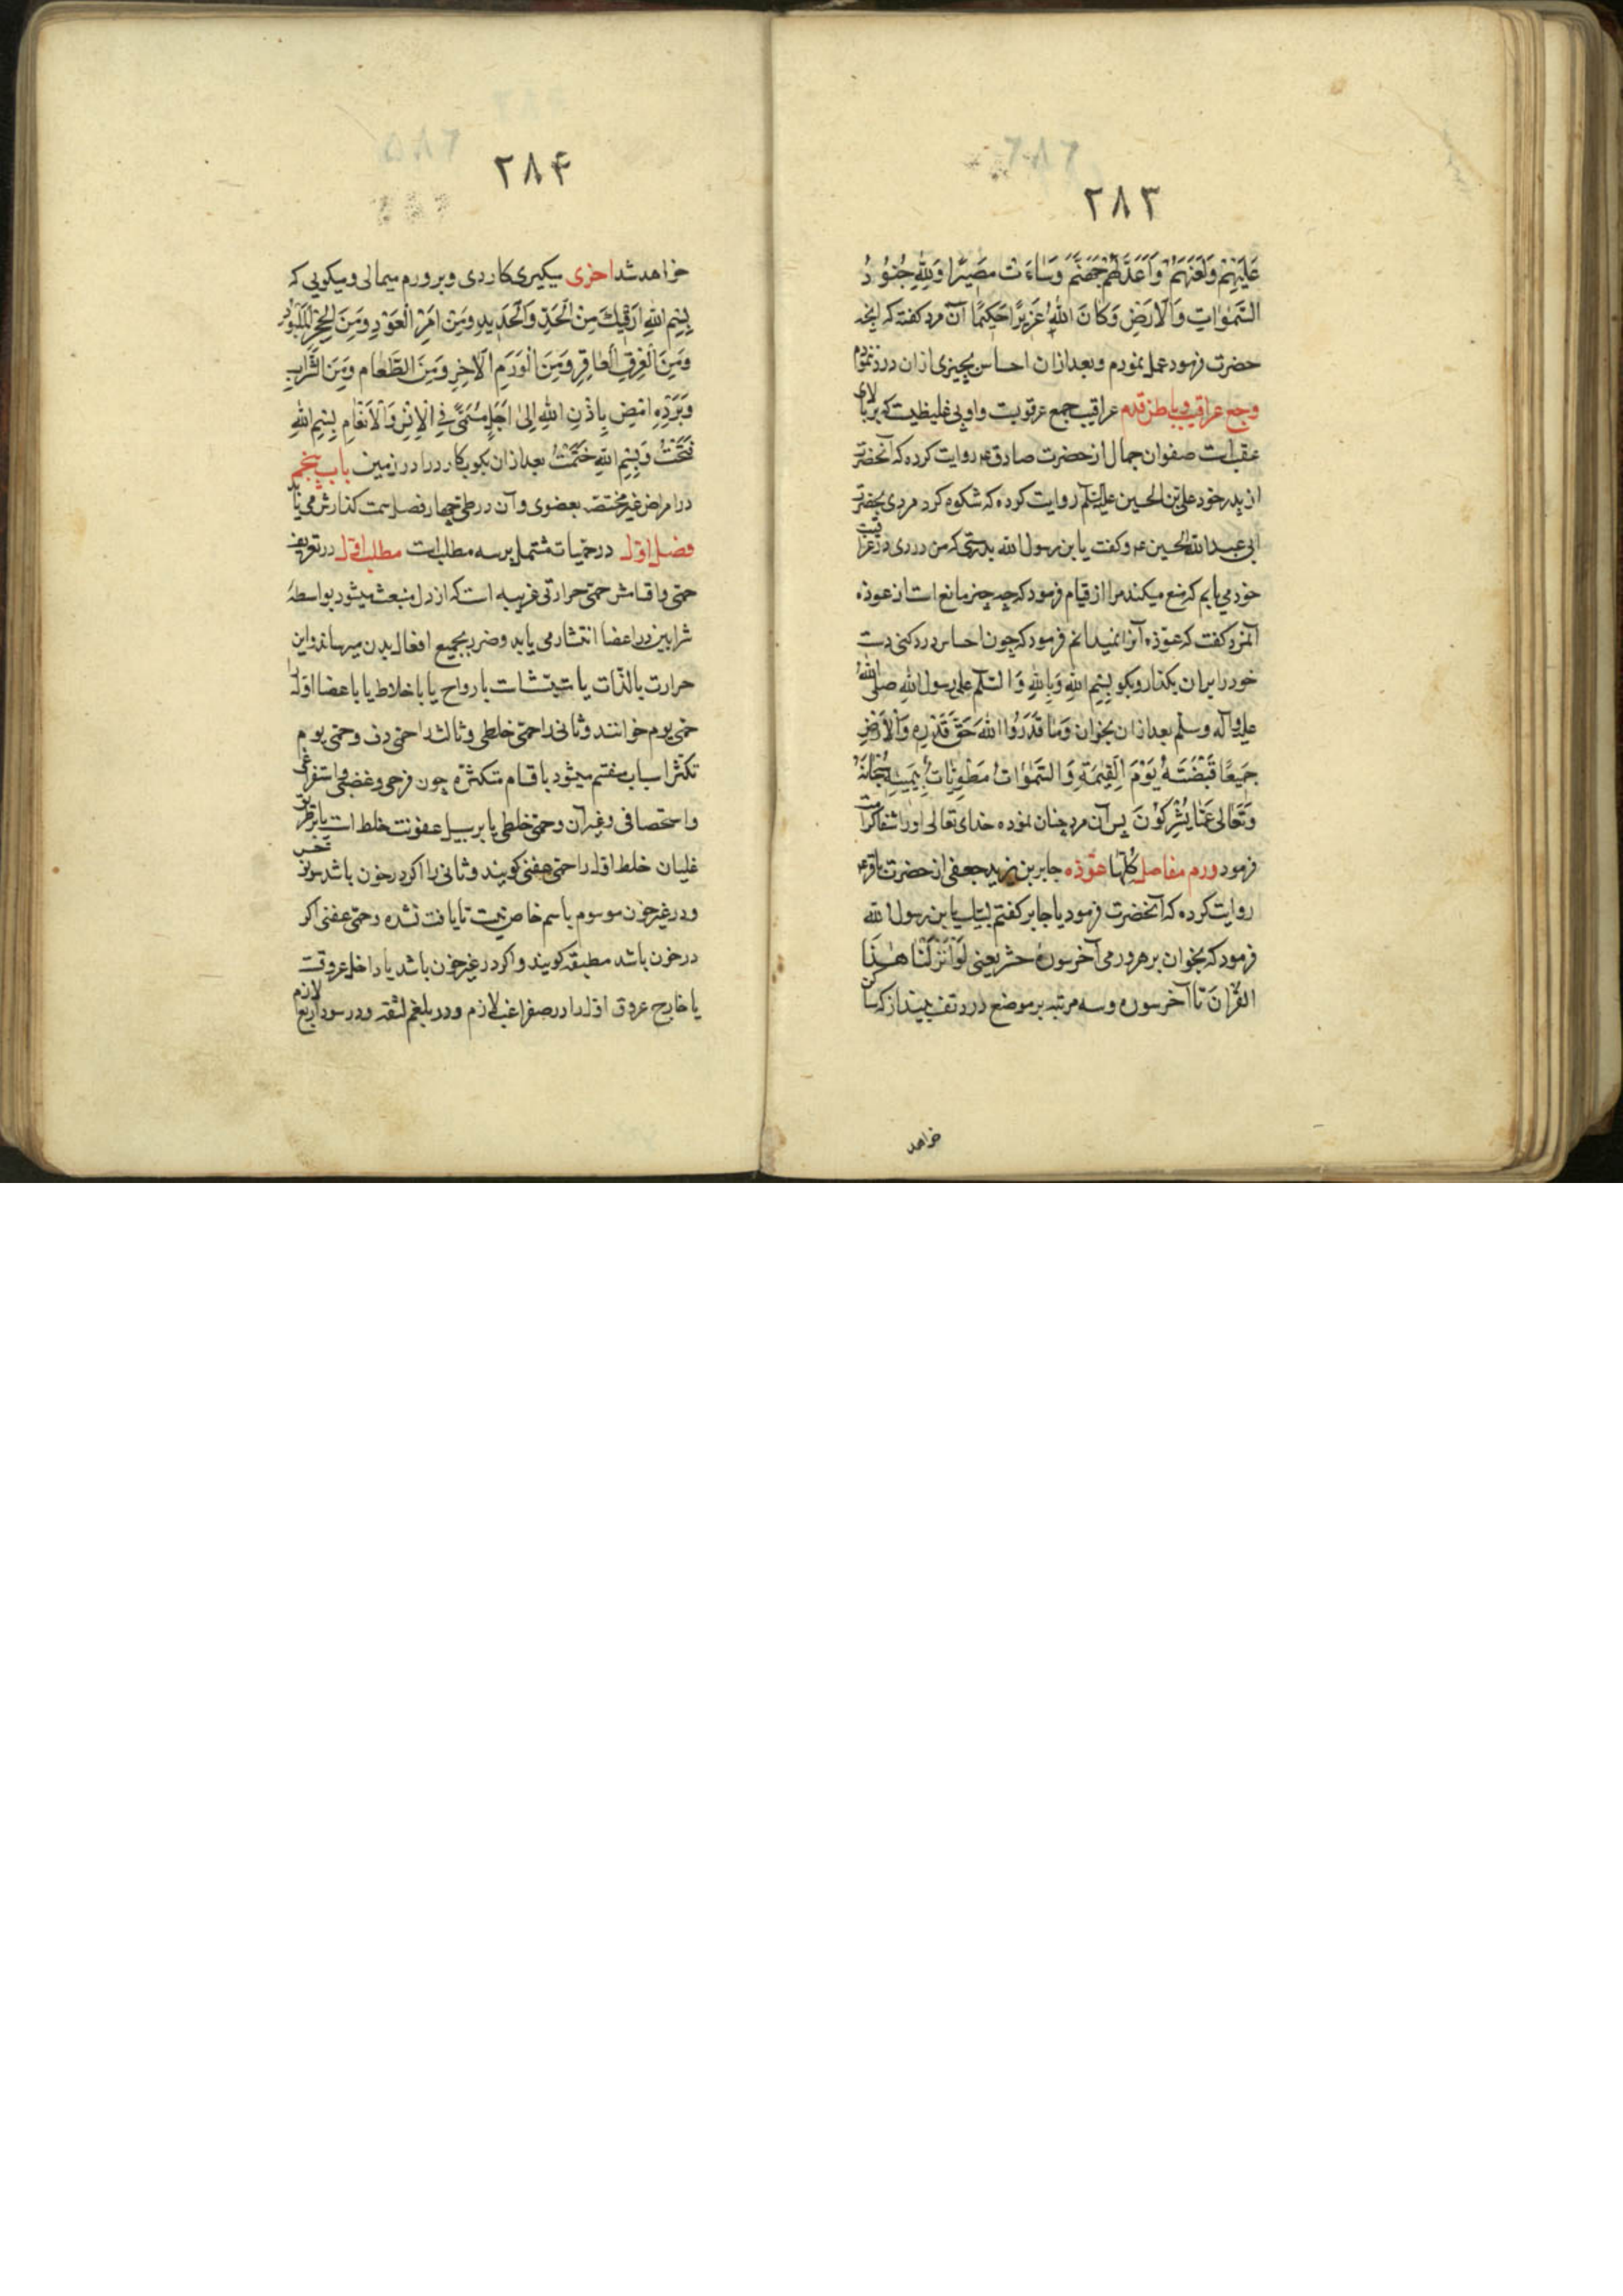 ۲۸۳
عَلَيْهِمْ وَلَعَنَهُمْ وَاَعَدَّ لَهُمْ جَهَنَّمَ وَسَاءَتْ مَصِيرًا وَلِلّٰهِ جُنُودُ
السَّمٰوَاتِ وَالْاَرْضِ وَكَانَ اللهُ عَزِيزًا حَكِيمًا آن مرد كفته كه انچه
حضرت فرمود عمل نمودم و بعد ازان احساس بچیزی ازان درد ننمودم
وجع عراقیب و باطن قدم عراقیب جمع عرقوبست و او پی غلیظیست که بر بالای
عقب است صفوان جمال از حضرت صادق ع روایت کرده که آنحضرت
از پدر خود علی بن الحسین علیه السلم روایت کرده که شکوه کرد مردی بحضرت
ابی عبد الله الحسین ع و کفت یا بن رسول الله بدرستی که من دردی در عراقیب
خود می یابم که منع میکند مرا از قیام فرمود که چه چیز مانع است از عوذه
آنمرد کفت که عوذه آنرا نمیدانم فرمود که چون احساس درد کنی دست
خود را بران بکذار و بکو بِسْمِ اللهِ وَبِاللهِ وَالسَّلٰمُ عَلٰى رسول اللهِ صلى اللهُ
علیه و آله وسلم بعد ازان بخوان وَمَا قَدَرُوا اللهَ حَقَّ قَدْرِهِ وَالْاَرْضُ
جَمِيعًا قَبْضَتُهُ يَوْمَ الْقِيٰمَةِ وَالسَّمٰوَاتُ مَطْوِيَّاتٌ بِيَمِينِهِ سُبْحَانَهُ
وَتَعَالٰى عَمَّا يُشْرِكُونَ پس آن مرد چنان نموده خدای تعالی او را شفا کرامت
فرمود ورم مفاصل کلها عوذه جابر بن یزید جعفی از حضرت باقر ع
روایت کرده که آنحضرت فرمود یا جابر کفتم لبیک یا بن رسول الله
فرمود که بخوان بر هر ورمی آخر سورهٔ حشر یعنی لَوْ اَنْزَلْنَا هٰذَا
القُرْاٰنَ تا آخر سوره و سه مرتبه بر موضع درد تف بینداز که ساکن
خواهد
۲۸۴
خواهد شد اخری میکیری کاردی و بر ورم میمالی و میکویی که
بِسْمِ اللهِ اَرْقِيكَ مِنَ الْحَدِّ وَالْحَدِيدِ وَمِنْ اَثَرِ الْعَوْدِ وَمِنَ الْحَجَرِ الْمَلْبُودِ
وَمِنَ الْعِرْقِ الْعَاقِرِ وَمِنَ الْوَرَمِ الْاٰخِرِ وَمِنَ الطَّعَامِ وَمِنَ الشَّرَابِ
وَبَرْدِهِ امْضِ بِاِذْنِ اللهِ اِلٰى اَجَلٍ مُسَمًّى فِي الْاِنْسِ وَالْاَنْعَامِ بِسْمِ اللهِ
فَتَحْتُ وَبِسْمِ اللهِ خَتَمْتُ بعد ازان بکوب کارد را در زمین باب پنجم
در امراض غیر مختصه بعضوی و آن در طی چهار فصل سمت کذارش می یابد
فصل اول در حمیات مشتمل بر سه مطلب است مطلب اول در تعریف
حمی و اقسامش حمی حرارتی غریبه است که از دل منبعث میشود بواسطهٔ
شرایین در اعضا انتشار می یابد و ضرر بجمیع افعال بدن میرساند و این
حرارت بالذات یا متشبث است بارواح یا باخلاط یا باعضا اول را
حمی یوم خوانند و ثانی را حمی خلطی و ثالث را حمی دق و حمی یوم
بتکثر اسباب منقسم میشود باقسام متکثره چون فرحی و غضبی و استفراغی
و استحصافی و غیر آن و حمی خلطی یا بر سبیل عفونت خلط است یا بر طریق
غلیان خلط اول را حمی عفنی کویند و ثانی را اکر در خون باشد سونوخس
و در غیر خون موسوم باسم خاص نیست تا یافت نشده و حمی عفنی اکر
در خون باشد مطبقه کویند و اکر در غیر خون باشد یا داخل عروقست
یا خارج عروق اول را در صفرا غب لازم و در بلغم لثقه و در سودا ربع لازم